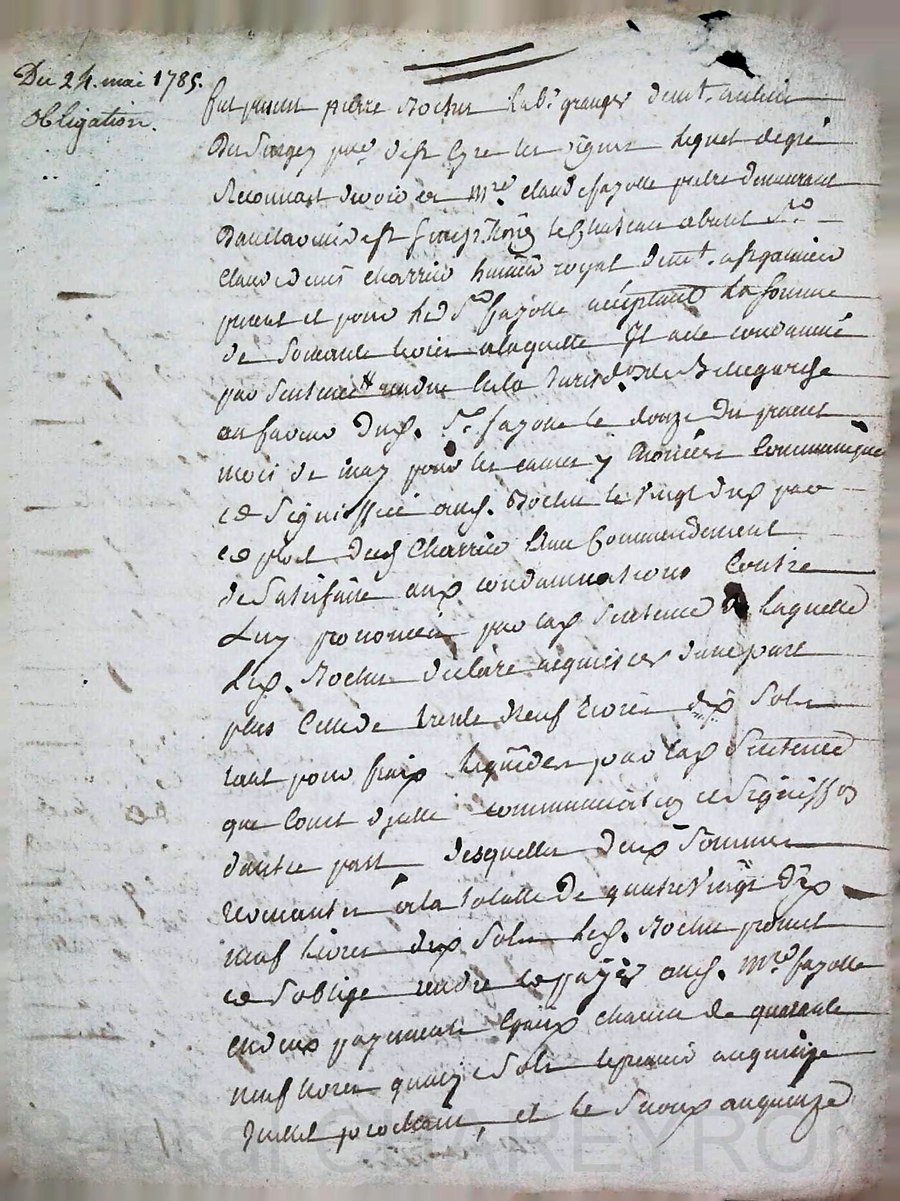 Du 24. mai 1785.
obligation.
fut present pierre Rochu hab.t granger dem.t
lequel de gré
Reconnoit devoir a M.re claude fayolle pretre demeurant
le chateau absent S.r
claude denis charrin huissier royal dem.t
present et pour led S.r fayolle acceptant la somme
de soixante livres a laquelle Il a ete condamné
par sentence rendue de la Jurisd.on de Bellegarde
en faveur dud. S.r fayolle le douze du present
mois de may pour les causes y enoncées communiquée
et signiffiée aud. Rochu le vingt deux par
exploit dud charrin avec commendement
de satisfaire aux condamnations contre
Luy prononcées par lad sentence a laquelle
led. Rochu declare acquiescer dune part
plus celle de trente neuf livres dix sols
tant pour frais liquidés par lad sentence
que cout d'icelle communication et signiff.on
dautre part desquelles deux sommes
revenantes a la totalle de quatre vingt dix
neuf livres dix sols led. Rochu promet
et s'oblige rendre et payer aud. M.re fayolle
en deux payements egaux chacun de quarante
neuf livres quinze sols le premier au quinze
Juillet prochain, et le second au quinze
Pascal CHAREYRON